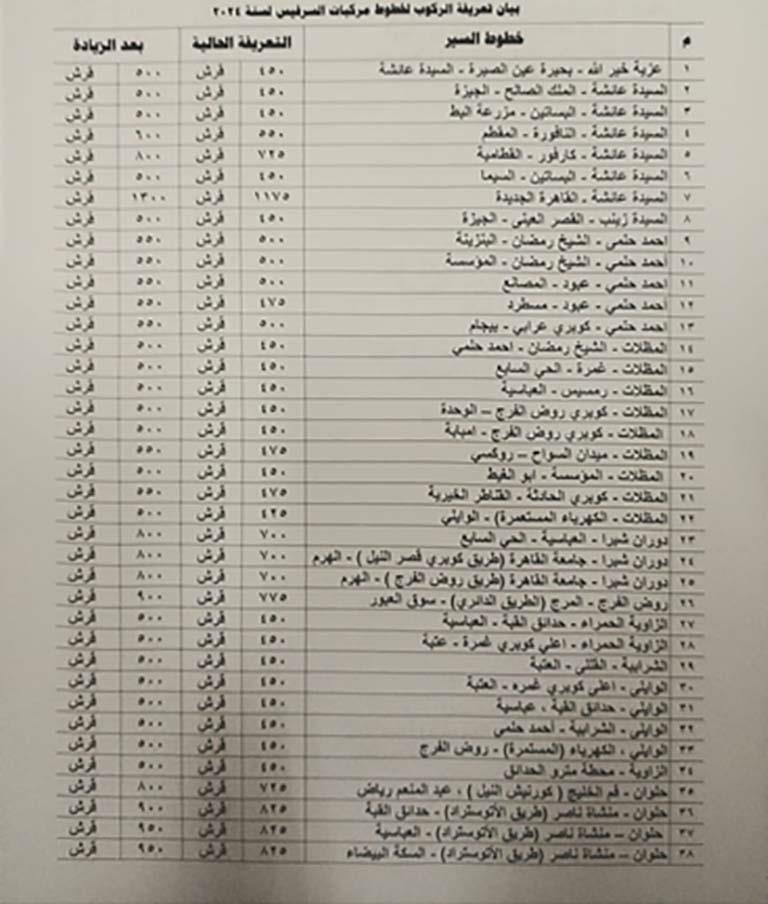 بيان تعريفة الركوب لخطوط مركبات السرفيس لسنة ٢٠٢٤
م خطوط السير التعريفة الحالية بعد الزيادة
١ عزبة خير الله - بحيرة عين الصيرة - السيدة عائشة ٤٥٠ قرش ٥٠٠ قرش
٢ السيدة عائشة - الملك الصالح - الجيزة ٤٥٠ قرش ٥٠٠ قرش
٣ السيدة عائشة - البساتين - مزرعة البط ٤٥٠ قرش ٥٠٠ قرش
٤ السيدة عائشة - النافورة - المقطم ٥٥٠ قرش ٦٠٠ قرش
٥ السيدة عائشة - كارفور - القطامية ٧٢٥ قرش ٨٠٠ قرش
٦ السيدة عائشة - البساتين - السيما ٤٥٠ قرش ٥٠٠ قرش
٧ السيدة عائشة - القاهرة الجديدة ١١٧٥ قرش ١٣٠٠ قرش
٨ السيدة زينب - القصر العينى - الجيزة ٤٥٠ قرش ٥٠٠ قرش
٩ احمد حلمي - الشيخ رمضان - البنزينة ٥٠٠ قرش ٥٥٠ قرش
١٠ أحمد حلمي - الشيخ رمضان - المؤسسة ٥٠٠ قرش ٥٥٠ قرش
١١ احمد حلمي - عبود - المصانع ٥٠٠ قرش ٥٥٠ قرش
١٢ أحمد حلمي - عبود - مسطرد ٤٧٥ قرش ٥٥٠ قرش
١٣ أحمد حلمي - كوبري عرابي - بيجام ٥٠٠ قرش ٥٥٠ قرش
١٤ المظلات - الشيخ رمضان - احمد حلمي ٤٥٠ قرش ٥٠٠ قرش
١٥ المظلات - غمرة - الحي السابع ٤٥٠ قرش ٥٠٠ قرش
١٦ المظلات - رمسيس - العباسية ٤٥٠ قرش ٥٠٠ قرش
١٧ المظلات - كوبري روض الفرج – الوحدة ٤٥٠ قرش ٥٠٠ قرش
١٨ المظلات - كوبري روض الفرج - امبابة ٤٥٠ قرش ٥٠٠ قرش
١٩ المظلات - ميدان السواح – روكسي ٤٧٥ قرش ٥٥٠ قرش
٢٠ المظلات - المؤسسة - ابو الغيط ٤٥٠ قرش ٥٠٠ قرش
٢١ المظلات - كوبري الحادثة - القناطر الخيرية ٤٧٥ قرش ٥٥٠ قرش
٢٢ المظلات - الكهرباء المستعمرة) - الوايلي ٤٢٥ قرش ٥٠٠ قرش
٢٣ دوران شبرا - العباسية - الحي السابع ٧٠٠ قرش ٨٠٠ قرش
٢٤ دوران شبرا - جامعة القاهرة (طريق كوبري قصر النيل ) - الهرم ٧٠٠ قرش ٨٠٠ قرش
٢٥ دوران شبرا - جامعة القاهرة (طريق روض الفرج ) - الهرم ٧٠٠ قرش ٨٠٠ قرش
٢٦ روض الفرج - المرج (الطريق الدائري) - سوق العبور ٧٧٥ قرش ٩٠٠ قرش
٢٧ الزاوية الحمراء - حدائق القبة - العباسية ٤٥٠ قرش ٥٠٠ قرش
٢٨ الزاوية الحمراء - اعلي كوبري غمرة - عتبة ٤٥٠ قرش ٥٠٠ قرش
٢٩ الشرابية - القللى - العتبة ٤٥٠ قرش ٥٠٠ قرش
٣٠ الوايلي - اعلى كوبري غمره - العتبة ٤٥٠ قرش ٥٠٠ قرش
٣١ الوايلي - حدائق القبة ، عباسية ٤٥٠ قرش ٥٠٠ قرش
٣٢ الوايلى - الشرابية - أحمد حلمى ٤٥٠ قرش ٥٠٠ قرش
٣٣ الوايلي ، الكهرباء (المستمرة) - روض الفرج ٤٥٠ قرش ٥٠٠ قرش
٣٤ الزاوية - محطة مترو الحدائق ٤٥٠ قرش ٥٠٠ قرش
٣٥ حلوان - فم الخليج ( كورنيش النيل ) ، عبد المنعم رياض ٧٢٥ قرش ٨٠٠ قرش
٣٦ حلوان - منشاة ناصر (طريق الأتوستراد) - حدائق القبة ٨٢٥ قرش ٩٠٠ قرش
٣٧ حلوان – منشاة ناصر (طريق الأتوستراد) - العباسية ٨٢٥ قرش ٩٥٠ قرش
٣٨ حلوان – منشاة ناصر (طريق الأتوستراد) - السكة البيضاء ٨٢٥ قرش ٩٥٠ قرش